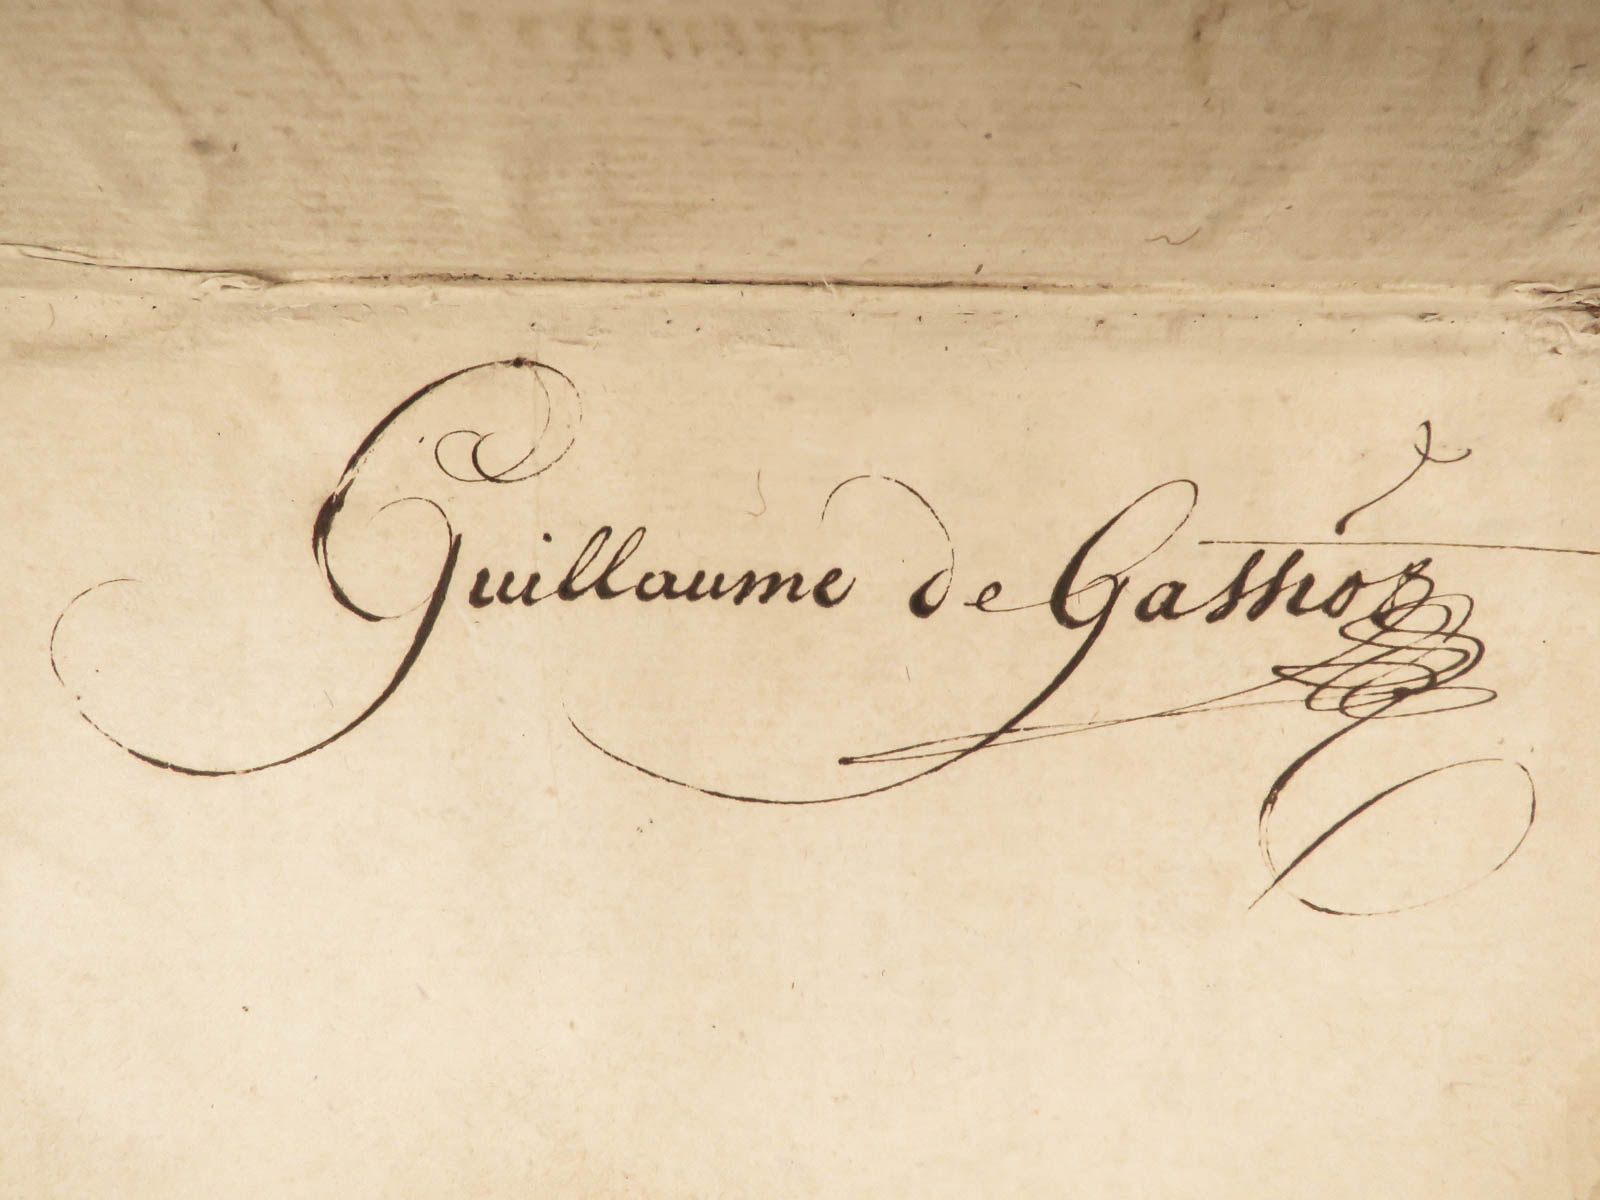 Guillaume de Gassios